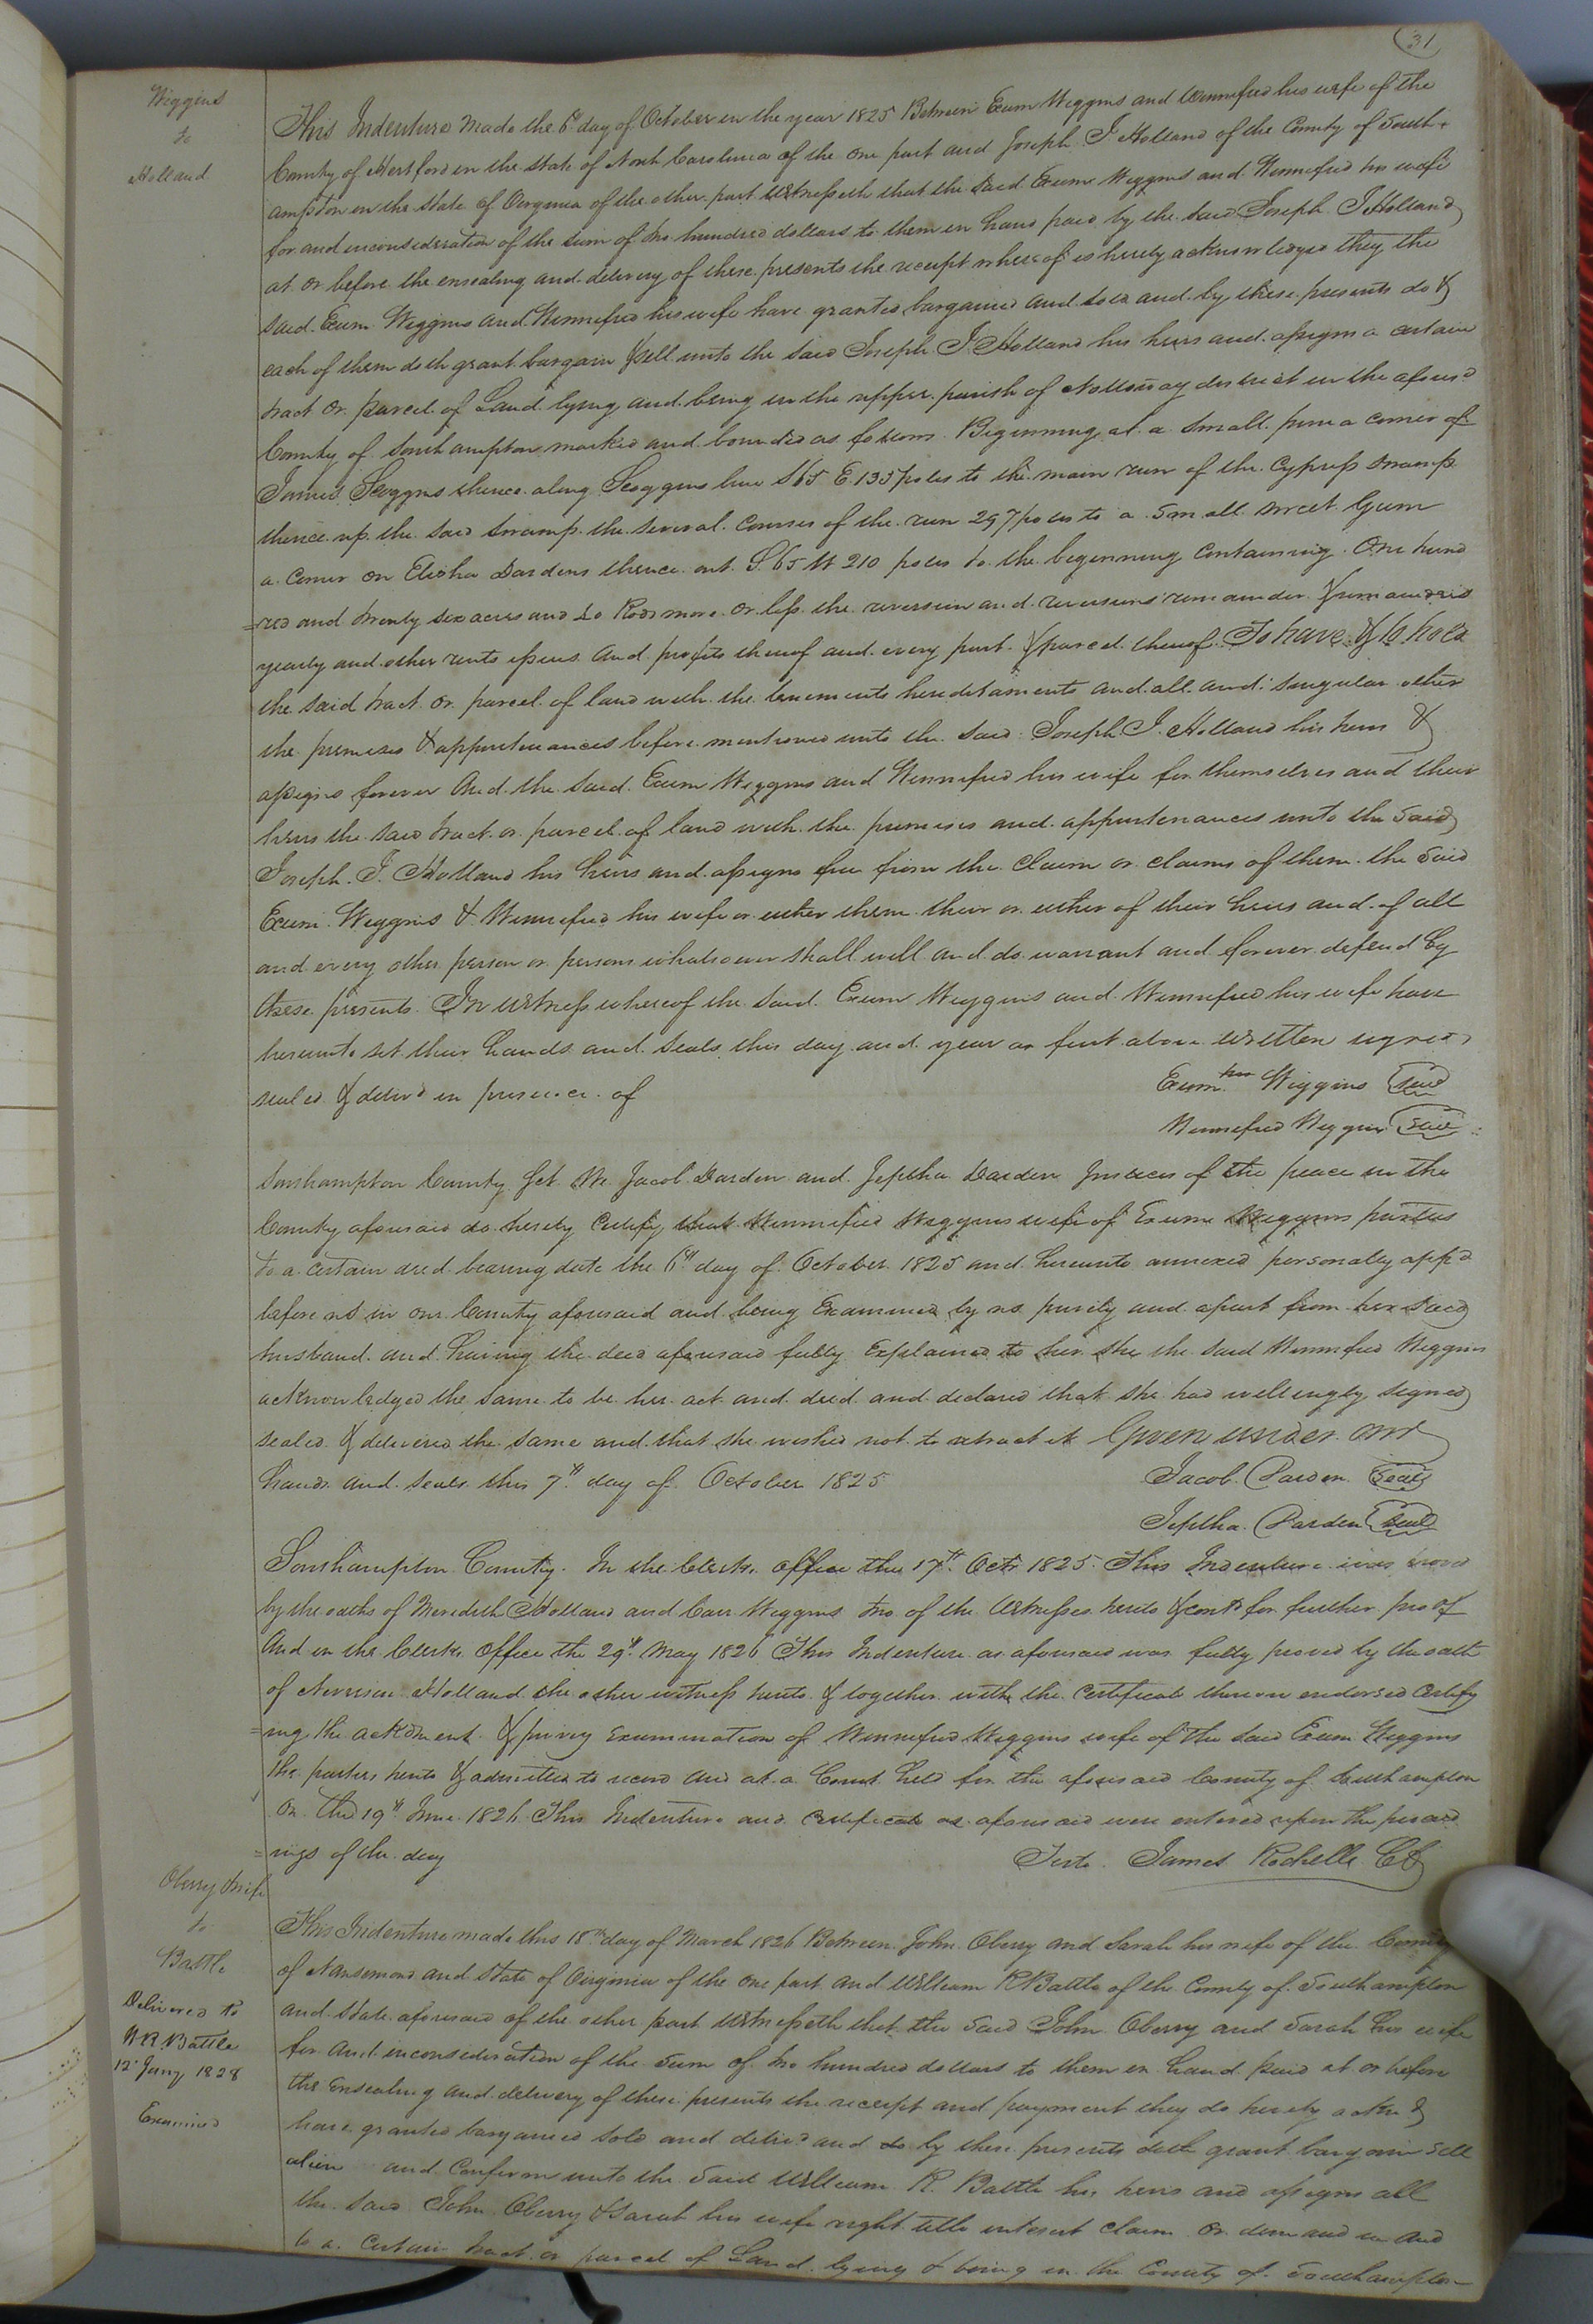 31
Wiggins
to
Holland
This Indenture made the 6th day of October in the year 1825 Between Exum Wiggins and Winnefred his wife of the
County of Hertford in the state of North Carolina of the one part and Joseph J Holland of the County of South-
ampton in the State of Virginia of the other part Witnesseth that the said Exum Wiggins and Winnefred his wife
for and inconsideration of the sum of two hundred dollars to them in hand paid by the said Joseph J Holland
at or before the ensealing and delivery of these presents the receipt whereof is hereby acknowledged they the
said Exum Wiggins and Winnefred his wife have granted bargained and sold and by these presents do &
each of them doth grant bargain & sell unto the said Joseph J Holland his heirs and assigns a certain
tract or parcel of Land lying and being in the upper parish of Nottoway district in the aforesd
County of Southampton marked and bounded as follows Beginning at a small pine a corner of
James Scoggins thence along Scoggins line S65 E 135 poles to the main run of the Cypress swamp
thence up the said swamp the several courses of the run 297 poles to a small sweet Gum
a corner on Elisha Dardens thence out S.65 W 210 poles to the beginning Containing One hund
=red and twenty six acres and 20 Rods more or less the reversion and reversions remainder & remainders
yearly and other rents issues and profits thereof and every part & parcel thereof To have & to hold
the said tract or parcel of land with the tenements heredetaments and all and singular other
the premises & appurtenances before mentioned unto the said Joseph J. Holland his heirs &
assigns forever And the said Exum Wiggins and Winnefred his wife for themselves and their
heirs the said tract or parcel of land with the premises and appurtenances unto the said
Joseph J. Holland his heirs and assigns free from the claim or claims of them the said
Exum Wiggins & Winnefred his wife or either them their or either of their heirs and of all
and every other person or persons whatsoever shall will and do warrant and forever defend by
these presents In witness whereof the said Exum Wiggins and Winnefred his wife have
hereunto set their hands and seals this day and year as first above written signed
sealed & delivd in presence of
Exum his Wiggins seal
Winnefred Wiggins seal
Southampton County Sct We Jacob Darden and Jeptha Darden Justices of the peace in the
County aforesaid do hereby Certify that Winnefred Wiggins wife of Exum Wiggins parties
to a certain deed bearing date the 6th day of October 1825 and hereunto annexed personally appd
before us in our County aforesaid and being Examined by us privily and apart from her said
husband and having the deed aforesaid fully Explained to her she the said Winnefred Wiggins
acknowledged the same to be her act and deed and declared that she had willingly signed
sealed & delivered the same and that she wished not to retract it Given under our
hands and seals this 7th day of October 1825
Jacob Darden Seal
Jeptha Darden seal
Southampton County. In the Clerks office the 17th Octr 1825. This Indenture was proved
by the oaths of Meredith Holland and Carr Wiggins two of the Witnesses hereto & contd for further proof
And in the Clerks Office the 29th May 1826 This Indenture as aforesaid was fully proved by the oath
of Holland the other witness hereto & together with the Certificate thereon endorsed certify
=ing the ackdment & privy Examination of Winnefred Wiggins wife of the said Exum Wiggins
the parties hereto & admitted to record And at a Court held for the aforesaid County of Southampton
on the 19th June 1826 This Indenture and Certificate as aforesaid were entered upon the proceed
=ings of the day
Teste James Rochelle CC
Oberry & wife
to
Battle
Delivered to
W R Battle
12 Jany 1828
Examined
This Indenture made this 18th day of March 1826 Between John Oberry and Sarah his wife of the County
of Nansemond and State of Virginia of the one part and William R Battle of the County of Southampton
and State aforesaid of the other part Witnesseth that the said John Oberry and Sarah his wife
for and inconsideration of the sum of two hundred dollars to them in hand paid at or before
the Ensealing and delivery of these presents the receipt and payment they do hereby ackn &
have granted bargained sold and delivd and do by these presents doth grant bargain sell
alien and Confirm unto the said William R. Battle his heirs and assigns all
the said John Oberry & Sarah his wife right title interest claim or demand in and
to a certain tract or parcel of Land lying & being in the County of Southampton